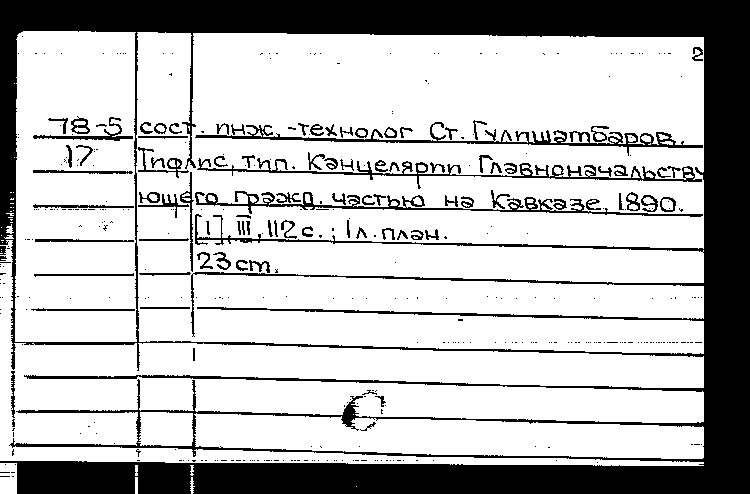 2
78-5 сост. инж.-технолог Ст. Гулишамбаров.
17 Тифлис, тип. Канцелярии Главноначальству
ющего гражд. частью на Кавказе, 1890.
[1], III, 112 с.; 1 л. план.
23 cm.